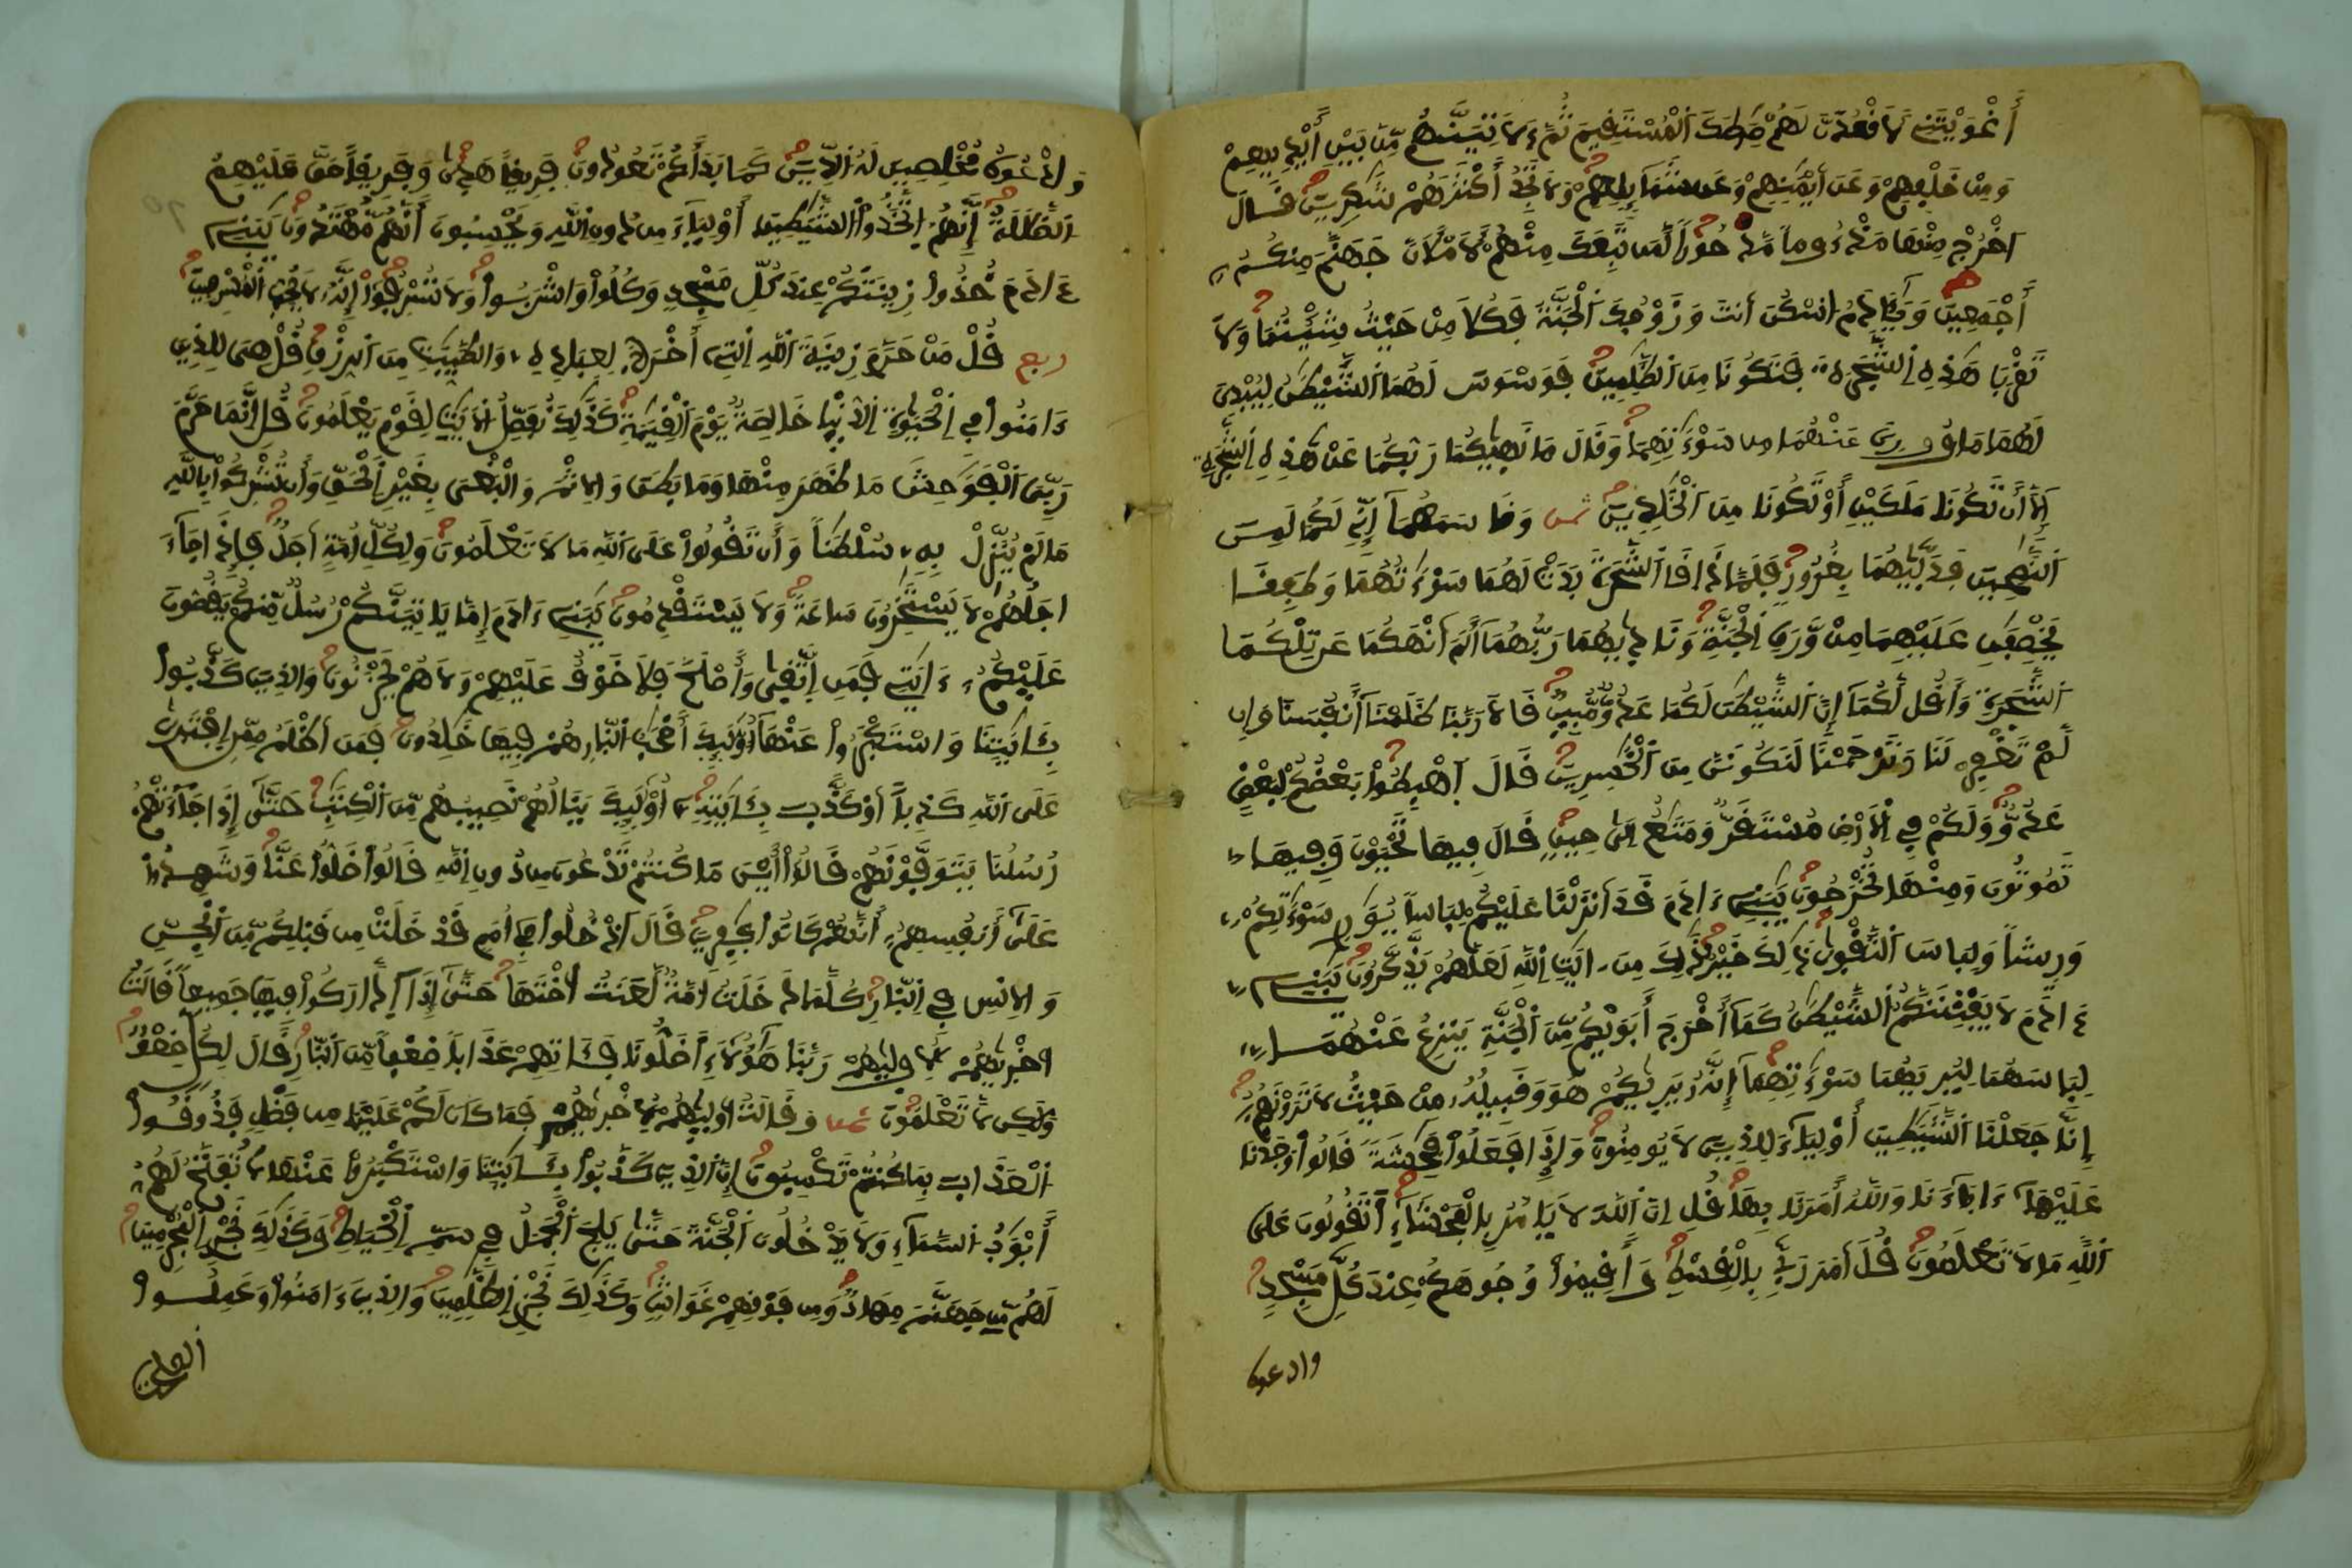 أَغْوَيْتَنِے لَأَقْعُدَنَّ لَهُمْ صِرَٰطَكَ اَ۬لْمُسْتَقِيمَ ثُمَّ ءَلَاتِيَنَّهُم مِّنۢ بَيْنِ أَيْدِيهِمْ
وَمِنْ خَلْفِهِمْ وَعَنَ اَيْمَٰنِهِمْ وَعَن شَمَآئِلِهِمْ وَلَا تَجِدُ أَكْثَرَهُمْ شَٰكِرِينَ قَالَ
اَ۟خْرُجْ مِنْهَا مَذْءُوماٗ مَّدْحُوراٗ لَّمَن تَبِعَكَ مِنْهُمْ لَأَمْلَأَنَّ جَهَنَّمَ مِنكُمُۥٓ
أَجْمَعِينَ وَيَٰٓـَٔادَمُ اُ۟سْكُنَ اَنتَ وَزَوْجُكَ اَ۬لْجَنَّةَ فَكُلَا مِنْ حَيْثُ شِئْتُمَا وَلَا
تَقْرَبَا هَٰذِهِ اِ۬لشَّجَرَةَ فَتَكُونَا مِنَ اَ۬لظَّٰلِمِينَ فَوَسْوَسَ لَهُمَا اَ۬لشَّيْطَٰنُ لِيُبْدِيَ
لَهُمَا مَا وُۥرِيَ عَنْهُمَا مِن سَوْءَٰتِهِمَا وَقَالَ مَا نَه۪يٰكُمَا رَبُّكُمَا عَنْ هَٰذِهِ اِ۬لشَّجَرَةِ
إِلَّآ أَن تَكُونَا مَلَكَيْنِ أَوْ تَكُونَا مِنَ اَ۬لْخَٰلِدِينَ ثمن وَقَاسَمَهُمَآ إِنِّے لَكُمَا لَمِنَ
اَ۬لنَّٰصِحِينَ فَدَلّ۪يٰهُمَا بِغُرُورٖ فَلَمَّا ذَاقَا اَ۬لشَّجَرَةَ بَدَتْ لَهُمَا سَوْءَٰتُهُمَا وَطَفِقَا
يَخْصِفَٰنِ عَلَيْهِمَا مِنْ وَّرَقِ اِ۬لْجَنَّةِ وَنَاد۪يٰهُمَا رَبُّهُمَآ أَلَمَ اَنْهَكُمَا عَن تِلْكُمَا
اَ۬لشَّجَرَةِ وَأَقُل لَّكُمَآ إِنَّ اَ۬لشَّيْطَٰنَ لَكُمَا عَدُوّٞ مُّبِينٞ قَالَا رَبَّنَا ظَلَمْنَآ أَنفُسَنَا وَإِن
لَّمْ تَغْفِرْ لَنَا وَتَرْحَمْنَا لَنَكُونَنَّ مِنَ اَ۬لْخَٰسِرِينَ قَالَ اَ۪هْبِطُواْ بَعْضُكُمْ لِبَعْضٍ
عَدُوّٞ وَلَكُمْ فِے اِ۬لَارْضِ مُسْتَقَرّٞ وَمَتَٰعٌ اِلَىٰ حِينٖ قَالَ فِيهَا تَحْيَوْنَ وَفِيهَا
تَمُوتُونَ وَمِنْهَا تُخْرَجُونَ يَٰبَنِےٓ ءَادَمَ قَدَ اَنزَلْنَا عَلَيْكُمْ لِبَاساٗ يُوَٰرِے سَوْءَٰتِكُمْ
وَرِيشاٗ وَلِبَاسَ اَ۬لتَّقْو۪يٰ ذَٰلِكَ خَيْرٞ ذَٰلِكَ مِنَ اٰيَٰتِ اِ۬للَّهِ لَعَلَّهُمْ يَذَّكَّرُونَ يَٰبَنِےٓ
ءَادَمَ لَا يَفْتِنَنَّكُمُ اُ۬لشَّيْطَٰنُ كَمَآ أَخْرَجَ أَبَوَيْكُم مِّنَ اَ۬لْجَنَّةِ يَنزِعُ عَنْهُمَا
لِبَاسَهُمَا لِيُرِيَهُمَا سَوْءَٰتِهِمَآ إِنَّهُۥ يَر۪يٰكُمْ هُوَ وَقَبِيلُهُۥ مِنْ حَيْثُ لَا تَرَوْنَهُمُۥٓ
إِنَّا جَعَلْنَا اَ۬لشَّيَٰطِينَ أَوْلِيَآءَ لِلذِينَ لَا يُومِنُونَ وَإِذَا فَعَلُواْ فَٰحِشَةٗ قَالُواْ وَجَدْنَا
عَلَيْهَآ ءَابَآءَنَا وَاللَّهُ أَمَرَنَا بِهَا قُلِ اِنَّ اَ۬للَّهَ لَا يَامُرُ بِالْفَحْشَآءِ اَ۬تَقُولُونَ عَلَى
اَ۬للَّهِ مَا لَا تَعْلَمُونَ قُلَ اَمَرَ رَبِّے بِالْقِسْطِ وَأَقِيمُواْ وُجُوهَكُمْ عِندَ كُلِّ مَسْجِدٖ
وادعوه
وَادْعُوهُ مُخْلِصِينَ لَهُ اُ۬لدِّينَ كَمَا بَدَأَكُمْ تَعُودُونَ فَرِيقاً هَد۪يٰ وَفَرِيقاً حَقَّ عَلَيْهِمُ
اُ۬لضَّلَٰلَةُ إِنَّهُمُ اُ۪تَّخَذُواْ اُ۬لشَّيَٰطِينَ أَوْلِيَآءَ مِن دُونِ اِ۬للَّهِ وَيَحْسِبُونَ أَنَّهُم مُّهْتَدُونَ يَٰبَنِےٓ
ءَادَمَ خُذُواْ زِينَتَكُمْ عِندَ كُلِّ مَسْجِدٖ وَكُلُواْ وَاشْرَبُواْ وَلَا تُسْرِفُوٓاْ إِنَّهُۥ لَا يُحِبُّ اُ۬لْمُسْرِفِينَ
ربع قُلْ مَنْ حَرَّمَ زِينَةَ اَ۬للَّهِ اِ۬لتِےٓ أَخْرَجَ لِعِبَادِهِۦ وَالطَّيِّبَٰتِ مِنَ اَ۬لرِّزْقِ قُلْ هِيَ لِلذِينَ
ءَامَنُواْ فِے اِ۬لْحَيَوٰةِ اِ۬لدُّنْيَا خَالِصَةٞ يَوْمَ اَ۬لْقِيَٰمَةِ كَذَٰلِكَ نُفَصِّلُ اُ۬لَايَٰتِ لِقَوْمٖ يَعْلَمُونَ قُلِ اِنَّمَا حَرَّمَ
رَبِّيَ اَ۬لْفَوَٰحِشَ مَا ظَهَرَ مِنْهَا وَمَا بَطَنَ وَالِاثْمَ وَالْبَغْيَ بِغَيْرِ اِ۬لْحَقِّ وَأَن تُشْرِكُواْ بِاللَّهِ
مَا لَمْ يُنَزِّلْ بِهِۦ سُلْطَٰناٗ وَأَن تَقُولُواْ عَلَى اَ۬للَّهِ مَا لَا تَعْلَمُونَ وَلِكُلِّ أُمَّةٍ اَجَلٞ فَإِذَا جَآءَ
اجَلُهُمْ لَا يَسْتَٰخِرُونَ سَاعَةٗ وَلَا يَسْتَقْدِمُونَ يَٰبَنِےٓ ءَادَمَ إِمَّا يَاتِيَنَّكُمْ رُسُلٞ مِّنكُمْ يَقُصُّونَ
عَلَيْكُمُۥٓ ءَايَٰتِے فَمَنِ اِ۪تَّق۪يٰ وَأَصْلَحَ فَلَا خَوْفٌ عَلَيْهِمْ وَلَا هُمْ يَحْزَنُونَ وَالذِينَ كَذَّبُواْ
بِـَٔايَٰتِنَا وَاسْتَكْبَرُواْ عَنْهَآ أُوْلَٰٓئِكَ أَصْحَٰبُ اُ۬لنّ۪ارِ هُمْ فِيهَا خَٰلِدُونَ فَمَنَ اَظْلَمُ مِمَّنِ اِ۪فْتَر۪يٰ
عَلَى اَ۬للَّهِ كَذِباً اَوْ كَذَّبَ بِـَٔايَٰتِهِۦٓ أُوْلَٰٓئِكَ يَنَالُهُمْ نَصِيبُهُم مِّنَ اَ۬لْكِتَٰبِ حَتَّىٰٓ إِذَا جَآءَتْهُمْ
رُسُلُنَا يَتَوَفَّوْنَهُمْ قَالُوٓاْ أَيْنَ مَا كُنتُمْ تَدْعُونَ مِن دُونِ اِ۬للَّهِ قَالُواْ ضَلُّواْ عَنَّا وَشَهِدُواْ
عَلَىٰٓ أَنفُسِهِمُۥٓ أَنَّهُمْ كَانُواْ كٰ۪فِرِينَ قَالَ اَ۟دْخُلُواْ فِےٓ أُمَمٖ قَدْ خَلَتْ مِن قَبْلِكُم مِّنَ اَ۬لْجِنِّ
وَالِانسِ فِے اِ۬لنّ۪ارِ كُلَّمَا دَخَلَتُ امَّةٞ لَّعَنَتُ اخْتَهَا حَتَّىٰٓ إِذَا اَ۪دَّارَكُواْ فِيهَا جَمِيعاٗ قَالَتُ
اخْر۪يٰهُمْ لِأُول۪يٰهُمْ رَبَّنَا هَٰٓؤُلَآءِ اَ۬ضَلُّونَا فَـَٔاتِهِمْ عَذَاباٗ ضِعْفاٗ مِّنَ اَ۬لنّ۪ارِ قَالَ لِكُلّٖ ضِعْفٞ
وَلَٰكِن لَّا تَعْلَمُونَ ثمن وَقَالَتُ اول۪يٰهُمْ لِأُخْر۪يٰهُمْ فَمَا كَانَ لَكُمْ عَلَيْنَا مِن فَضْلٖ فَذُوقُواْ
اُ۬لْعَذَابَ بِمَا كُنتُمْ تَكْسِبُونَ إِنَّ اَ۬لذِينَ كَذَّبُواْ بِـَٔايَٰتِنَا وَاسْتَكْبَرُواْ عَنْهَا لَا تُفَتَّحُ لَهُمُۥٓ
أَبْوَٰبُ اُ۬لسَّمَآءِ وَلَا يَدْخُلُونَ اَ۬لْجَنَّةَ حَتَّىٰ يَلِجَ اَ۬لْجَمَلُ فِے سَمِّ اِ۬لْخِيَاطِ وَكَذَٰلِكَ نَجْزِے اِ۬لْمُجْرِمِينَ
لَهُم مِّن جَهَنَّمَ مِهَادٞ وَمِن فَوْقِهِمْ غَوَاشٖ وَكَذَٰلِكَ نَجْزِے اِ۬لظَّٰلِمِينَ وَالذِينَ ءَامَنُواْ وَعَمِلُواْ
الصلحت